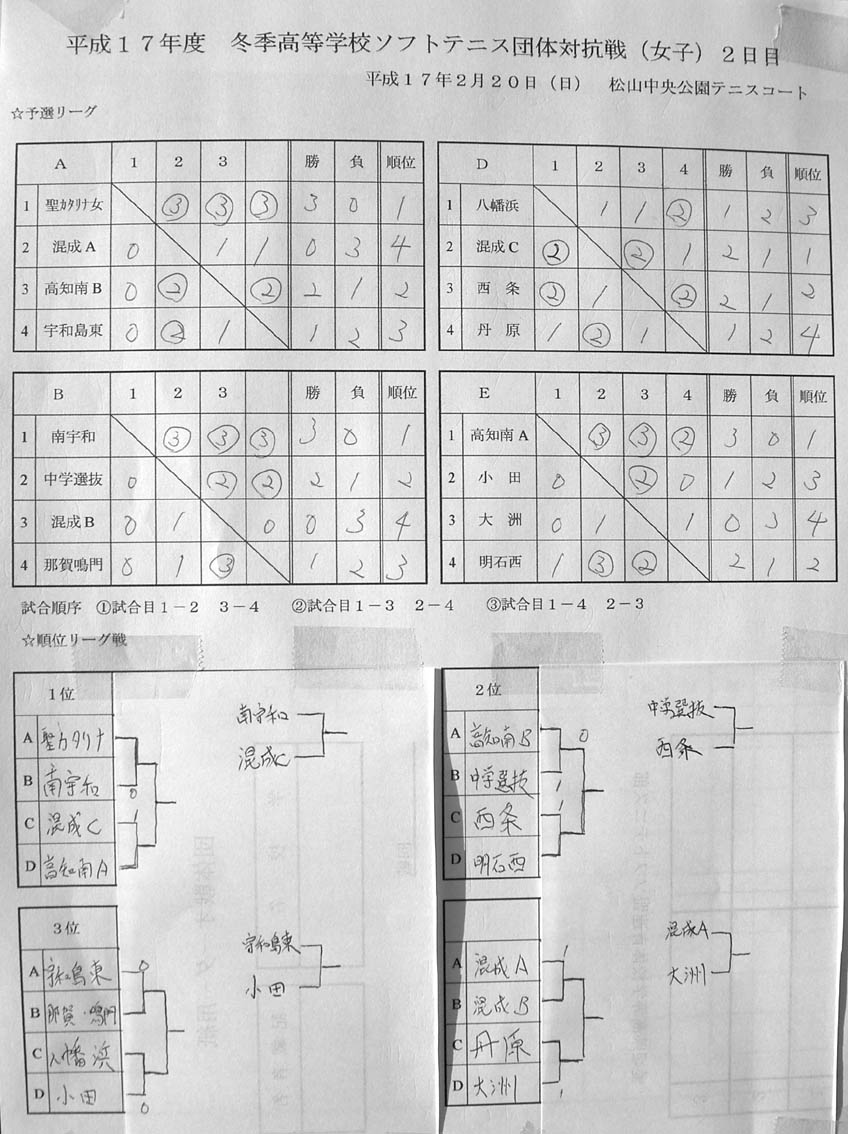 平成17年度 冬季高等学校ソフトテニス団体対抗戦（女子）2日目
平成17年2月20日（日） 松山中央公園テニスコート
☆予選リーグ
A 1 2 3 勝 負 順位
1 聖ｶﾀﾘﾅ女 ③ ③ ③ 3 0 1
2 混成A 0 1 1 0 3 4
3 高知南B 0 ② ② 2 1 2
4 宇和島東 0 ② 1 1 2 3
D 1 2 3 4 勝 負 順位
1 八幡浜 1 1 ② 1 2 3
2 混成C ② ② 1 2 1 1
3 西 条 ② 1 ② 2 1 2
4 丹 原 1 ② 1 1 2 4
B 1 2 3 勝 負 順位
1 南宇和 ③ ③ ③ 3 0 1
2 中学選抜 0 ② ② 2 1 2
3 混成B 0 1 0 0 3 4
4 那賀鳴門 0 1 ③ 1 2 3
E 1 2 3 4 勝 負 順位
1 高知南A ③ ③ ② 3 0 1
2 小 田 0 ② 0 1 2 3
3 大 洲 0 1 1 0 3 4
4 明石西 1 ③ ② 2 1 2
試合順序 ①試合目1－2 3－4 ②試合目1－3 2－4 ③試合目1－4 2－3
☆順位リーグ戦
1位
A 聖カタリナ
B 南宇和 0
C 混成C 1
D 高知南A
南宇和
混成C
2位
A 高知南B 0
B 中学選抜 1
C 西条 1
D 明石西
中学選抜
西条
3位
A 宇和島東 0
B 那賀・鳴門
C 八幡浜
D 小田 0
宇和島東
小田
A 混成A 1
B 混成B
C 丹原
D 大洲 1
混成A
大洲